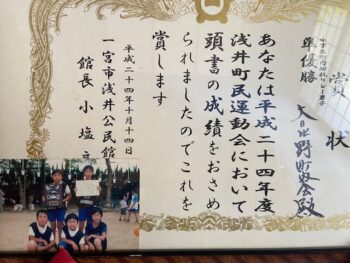 賞状
準優勝
大日比野町会殿
あなたは平成二十四年度
浅井町民運動会において
頭書の成績をおさめ
られましたのでこれを
賞します
平成二十四年十月十四日
一宮市浅井公民館
館長 小塩